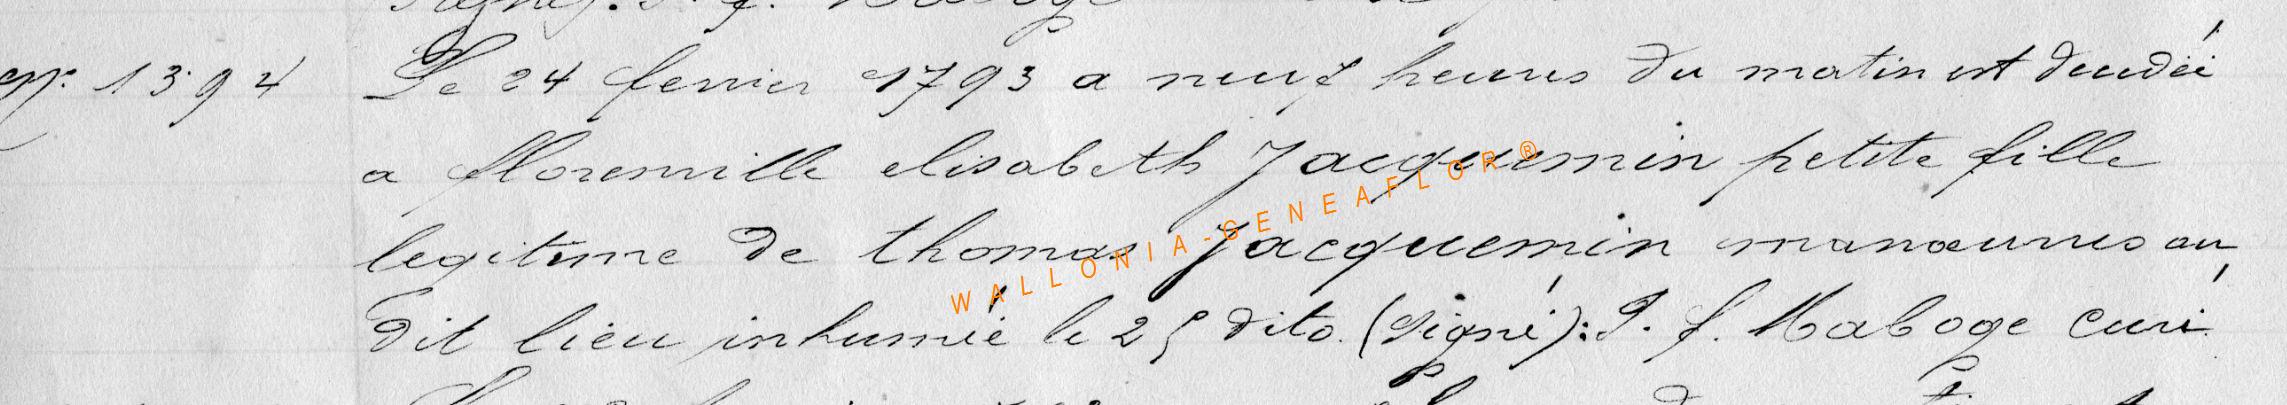 N° 1394 Le 24 fevrier 1793 a neuf heures du matin est decedée
a florenville elisabeth Jacquemin petite fille
legitime de thomas Jacquemin manœuvres au
dit lieu inhumée le 25 dito. (signé): J. f. Maboge curé.
WALLONIA-GENEAFLOR®